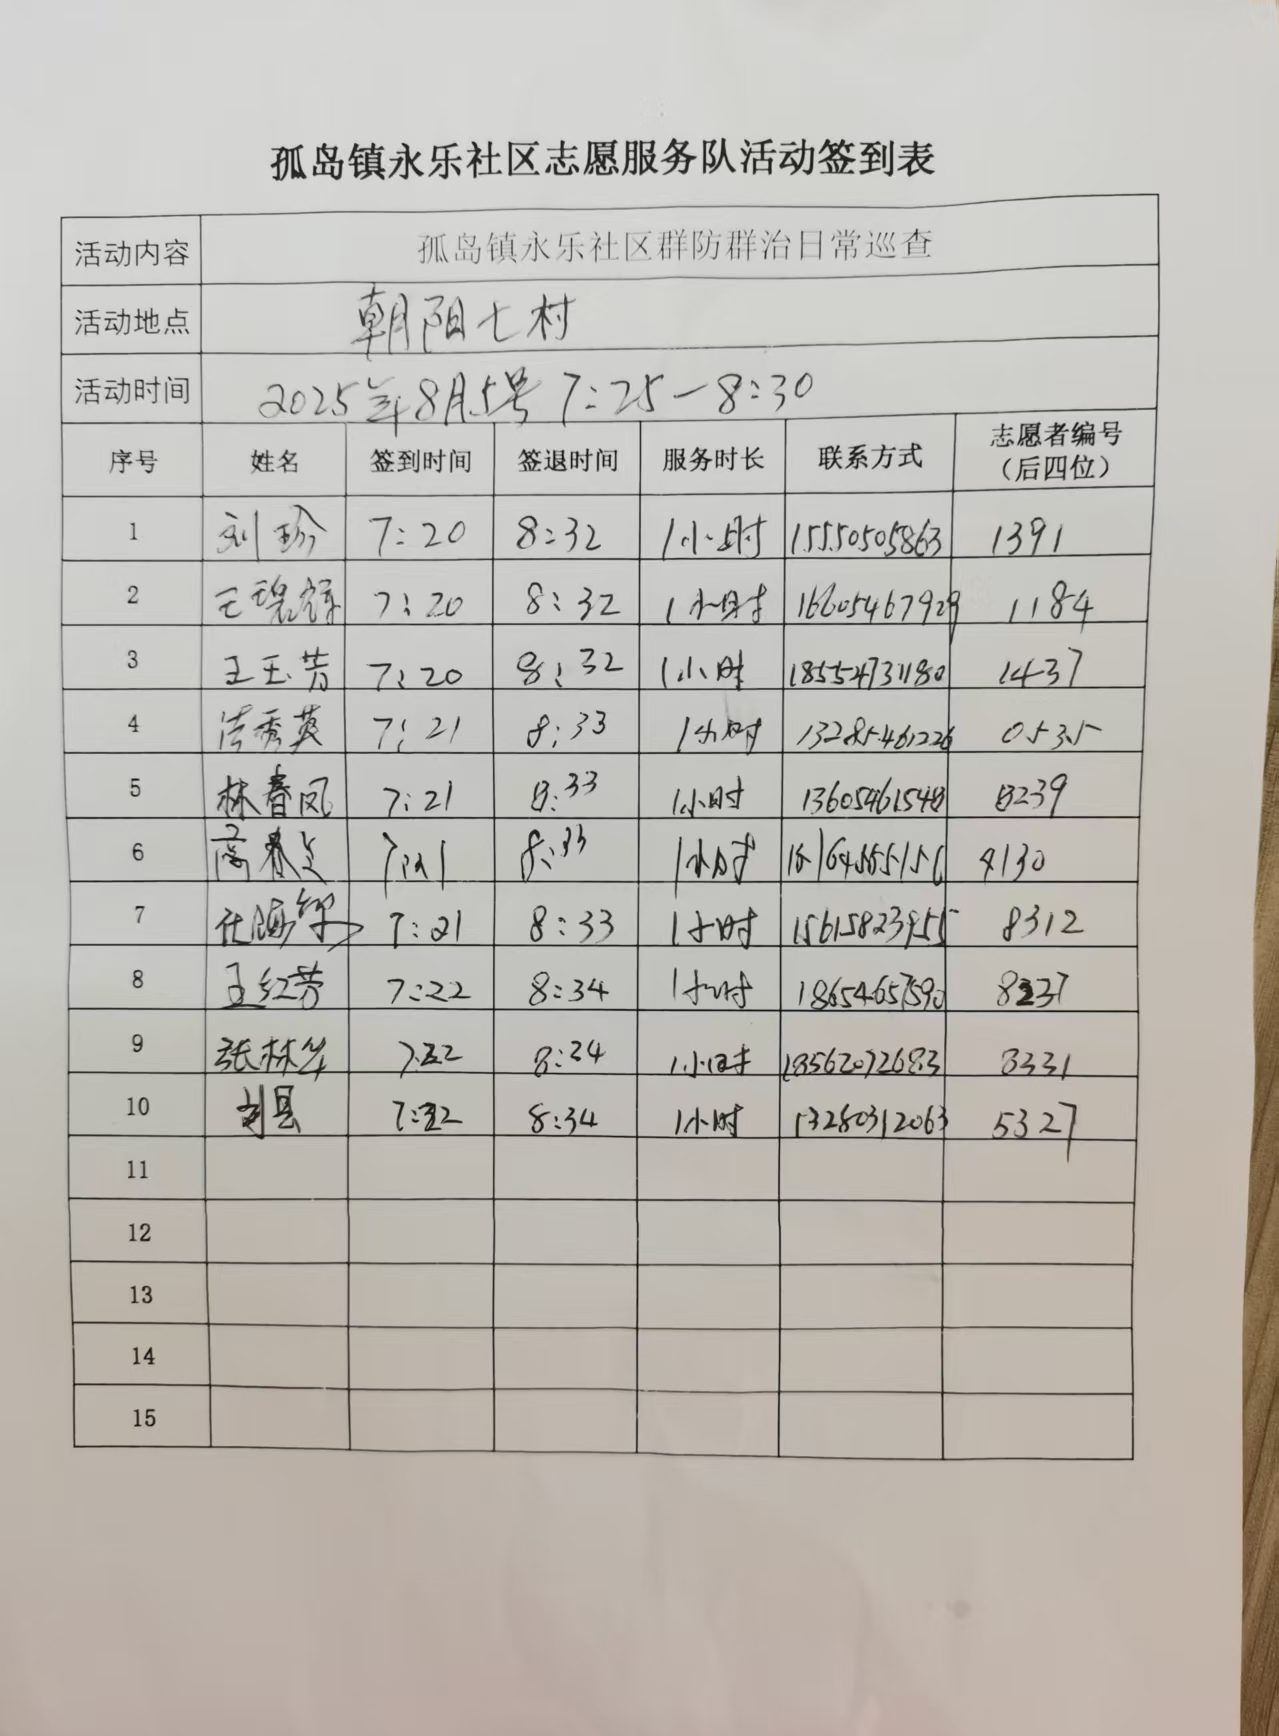 孤岛镇永乐社区志愿服务队活动签到表
活动内容 孤岛镇永乐社区群防群治日常巡查
活动地点 朝阳七村
活动时间 2025年8月5号 7:25-8:30
序号 姓名 签到时间 签退时间 服务时长 联系方式 志愿者编号（后四位）
1 刘珍 7:20 8:32 1小时 15550505863 1391
2 王 7:20 8:32 1小时 16605467929 1184
3 王玉芳 7:20 8:32 1小时 18554731180 1437
4 秀英 7:21 8:33 1小时 13285461226 0535
5 林春凤 7:21 8:33 1小时 13605461548 8239
6 高春 7:21 8:33 1小时 4130
7 任海 7:21 8:33 1小时 15615823955 8312
8 王红芳 7:22 8:34 1小时 18654657590 8237
9 张林华 7:22 8:34 1小时 18562072683 8331
10 7:22 8:34 1小时 13280312063 5327
11
12
13
14
15